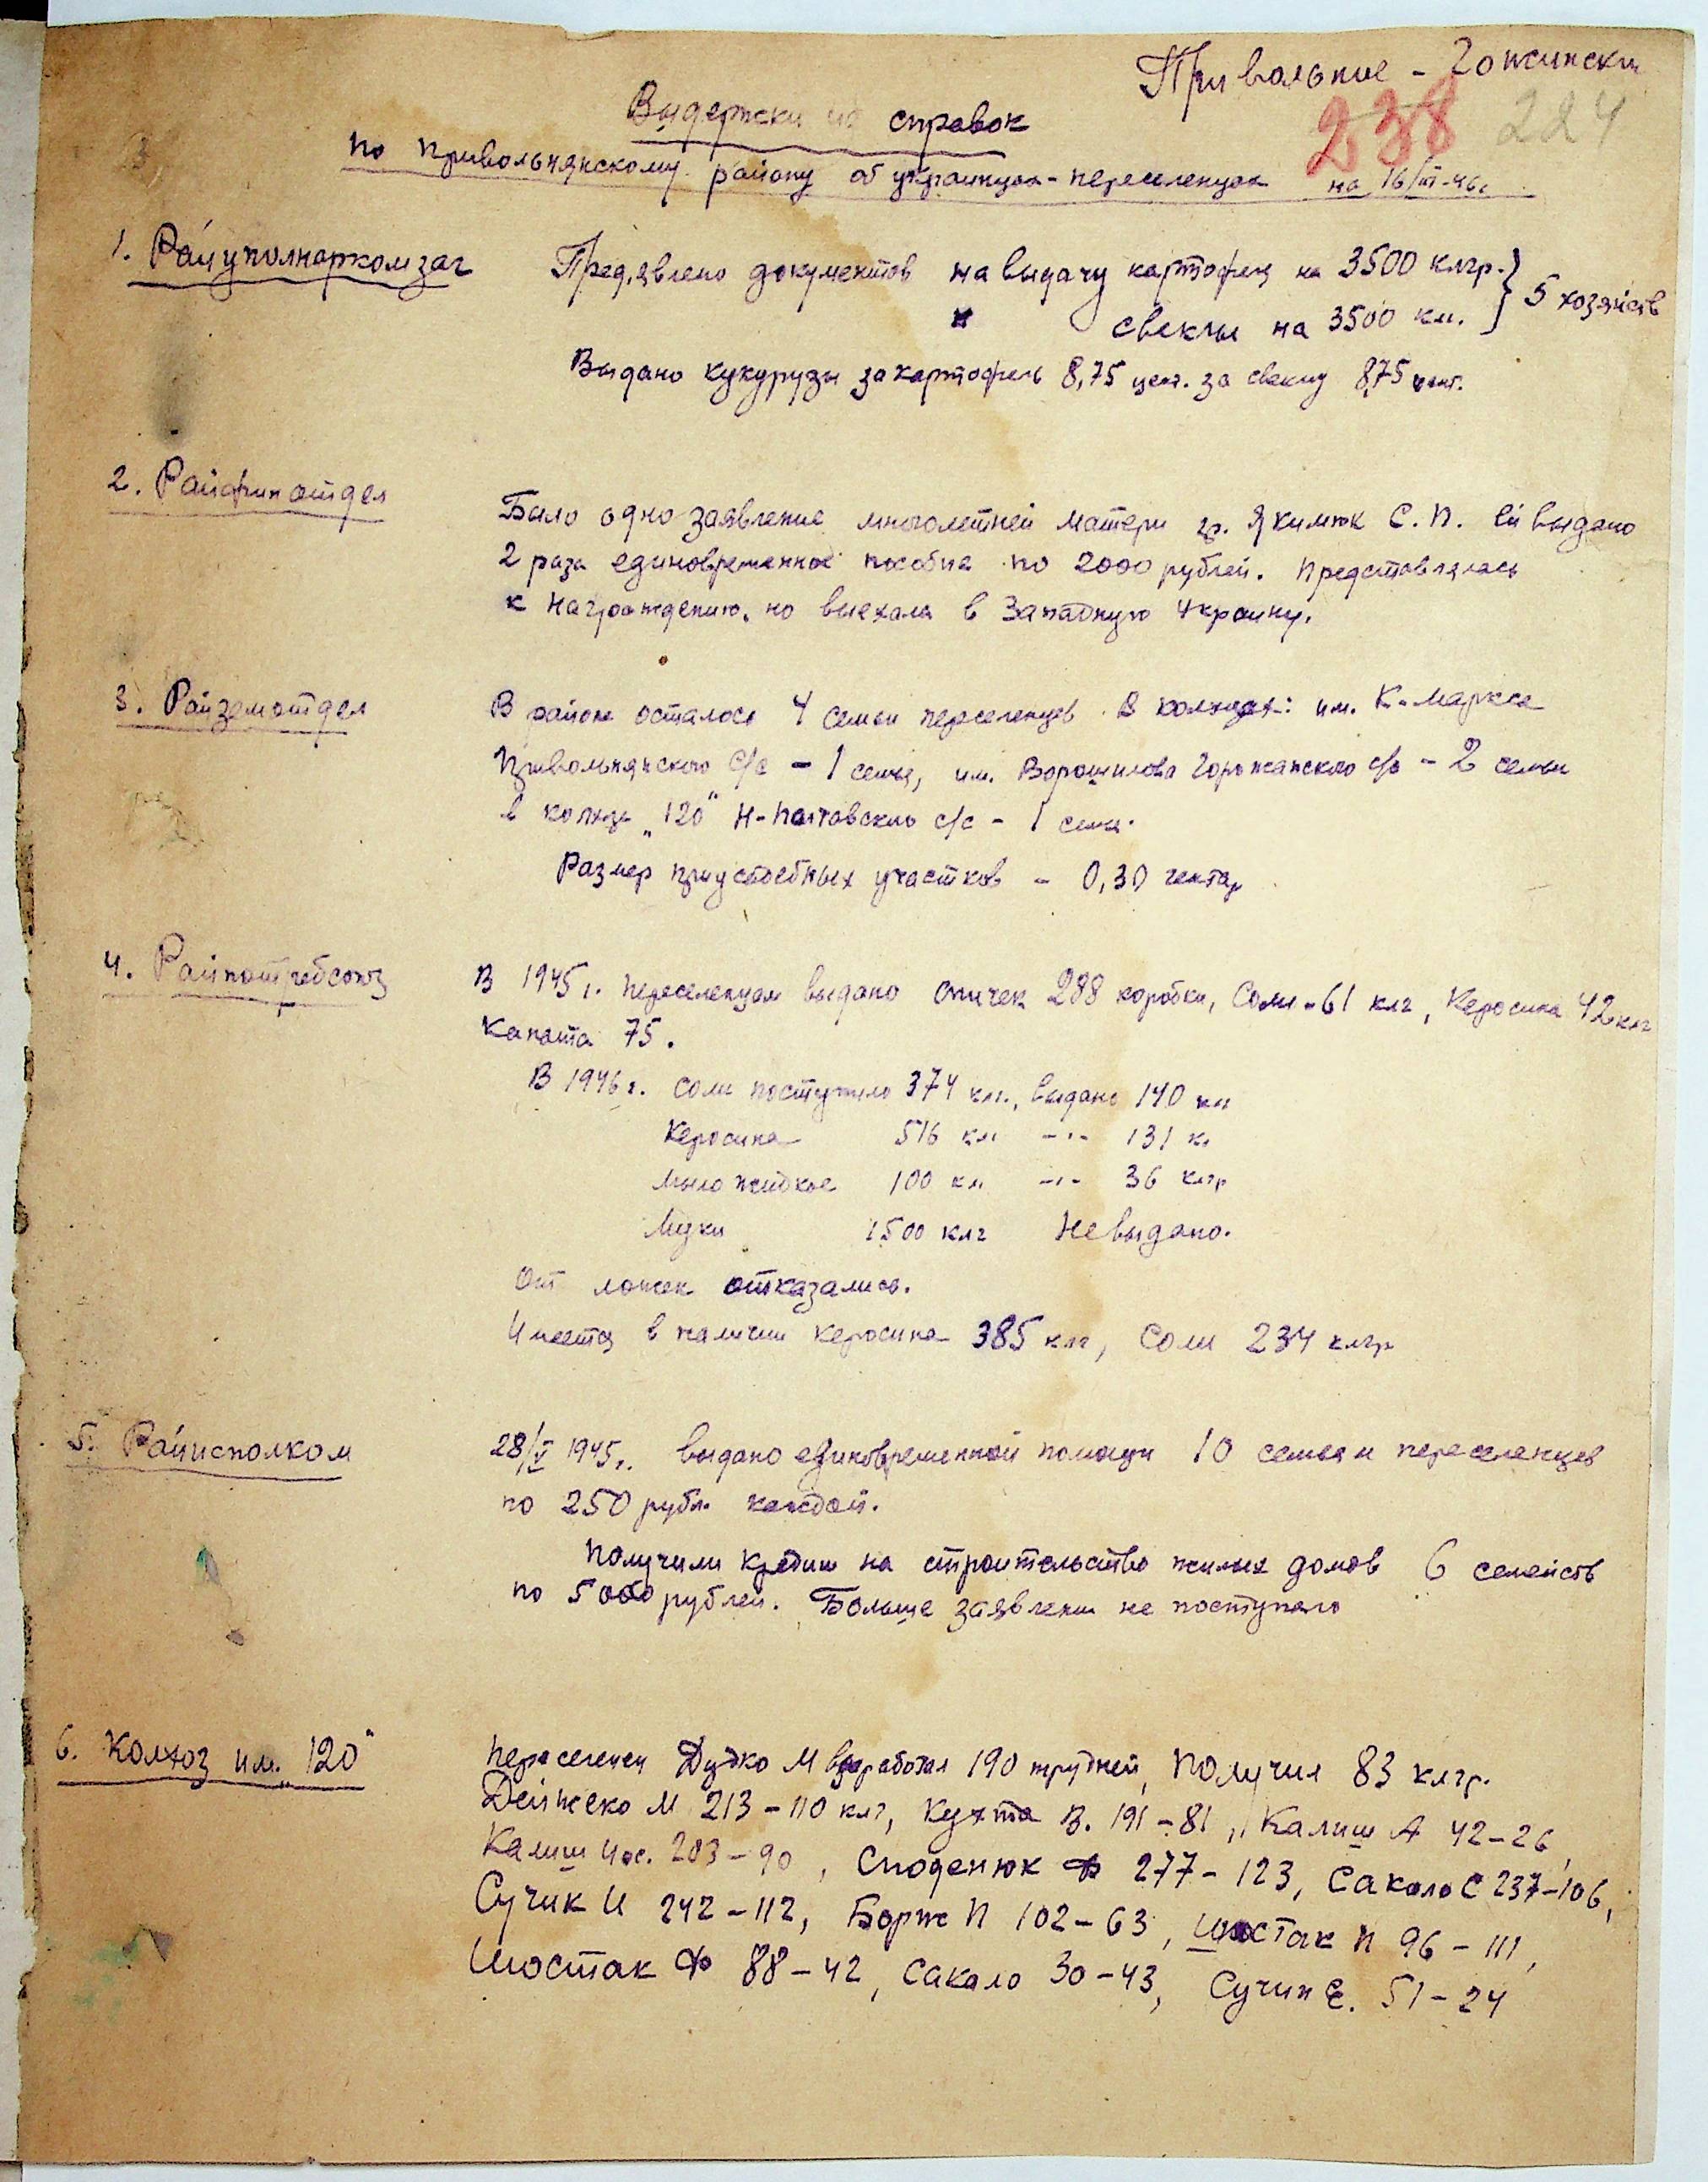 Привольное -
238 224
Выдержки из справок
по привольнянскому району об украинцах-переселенцах на 16/III-46г
1. Райуполнаркомзаг
Пред,явлено документов на выдачу картофеля на 3500 клгр. } 5 хозяйств
" свеклы на 3500 кл.
Выдано кукурузы за картофель 8,75 цен. за свеклу 8,75 цент.
2. Райфинотдел
Было одно заявление многолетней матери гр. Якимюк С. П. ей выдано
2 раза единовременное пособие по 2000 рублей. Представлялась
к награждению, но выехала в Западную Украину.
3. Райземотдел
В районе осталось 4 семьи переселенцев. В колхозах: им. К-Маркса
Привольнянского с/с - 1 семья, им. Ворошилова Горожанского с/с - 2 семьи
в колхозе "120" Н-Полтавского с/с - 1 семья.
Размер приусадебных участков - 0,30 гектар
4. Райпотребсоюз
В 1945 г. переселенцам выдано спичек 288 коробки, Соли - 61 клг, Керосина 42 клг
каната 75.
В 1946 г. соли поступило 374 клг., выдано 140 кл
Керосина 516 кл -"- 131 к
мыло жидкое 100 кл -"- 36 клгр
Муки 1500 клг Не выдано.
От ложек отказались.
Имеется в наличии керосина 385 клг, Соли 234 клгр
5. Райисполком
28/V 1945 г. выдано единовременной помощи 10 семьям переселенцев
по 250 рубл. каждой.
Получили кредит на строительство жилых домов 6 семейств
по 5000 рублей. Больше заявлени не поступало
6. Колхоз им. "120"
Переселенец Дудко М выработал 190 трудней, получил 83 клгр.
Дейнеко М 213 - 110 клг, Кухта В. 191 - 81, Калиш А 42 - 26,
Калиш Иос. 203 - 90, Споденюк Ф 277 - 123, Сакало С 237 - 106,
Сучик И 242 - 112, Борж П 102 - 63, Шостак П 96 - 111,
Шостак Ф 88 - 42, Сакало 30 - 43, Сучик Е. 51 - 24